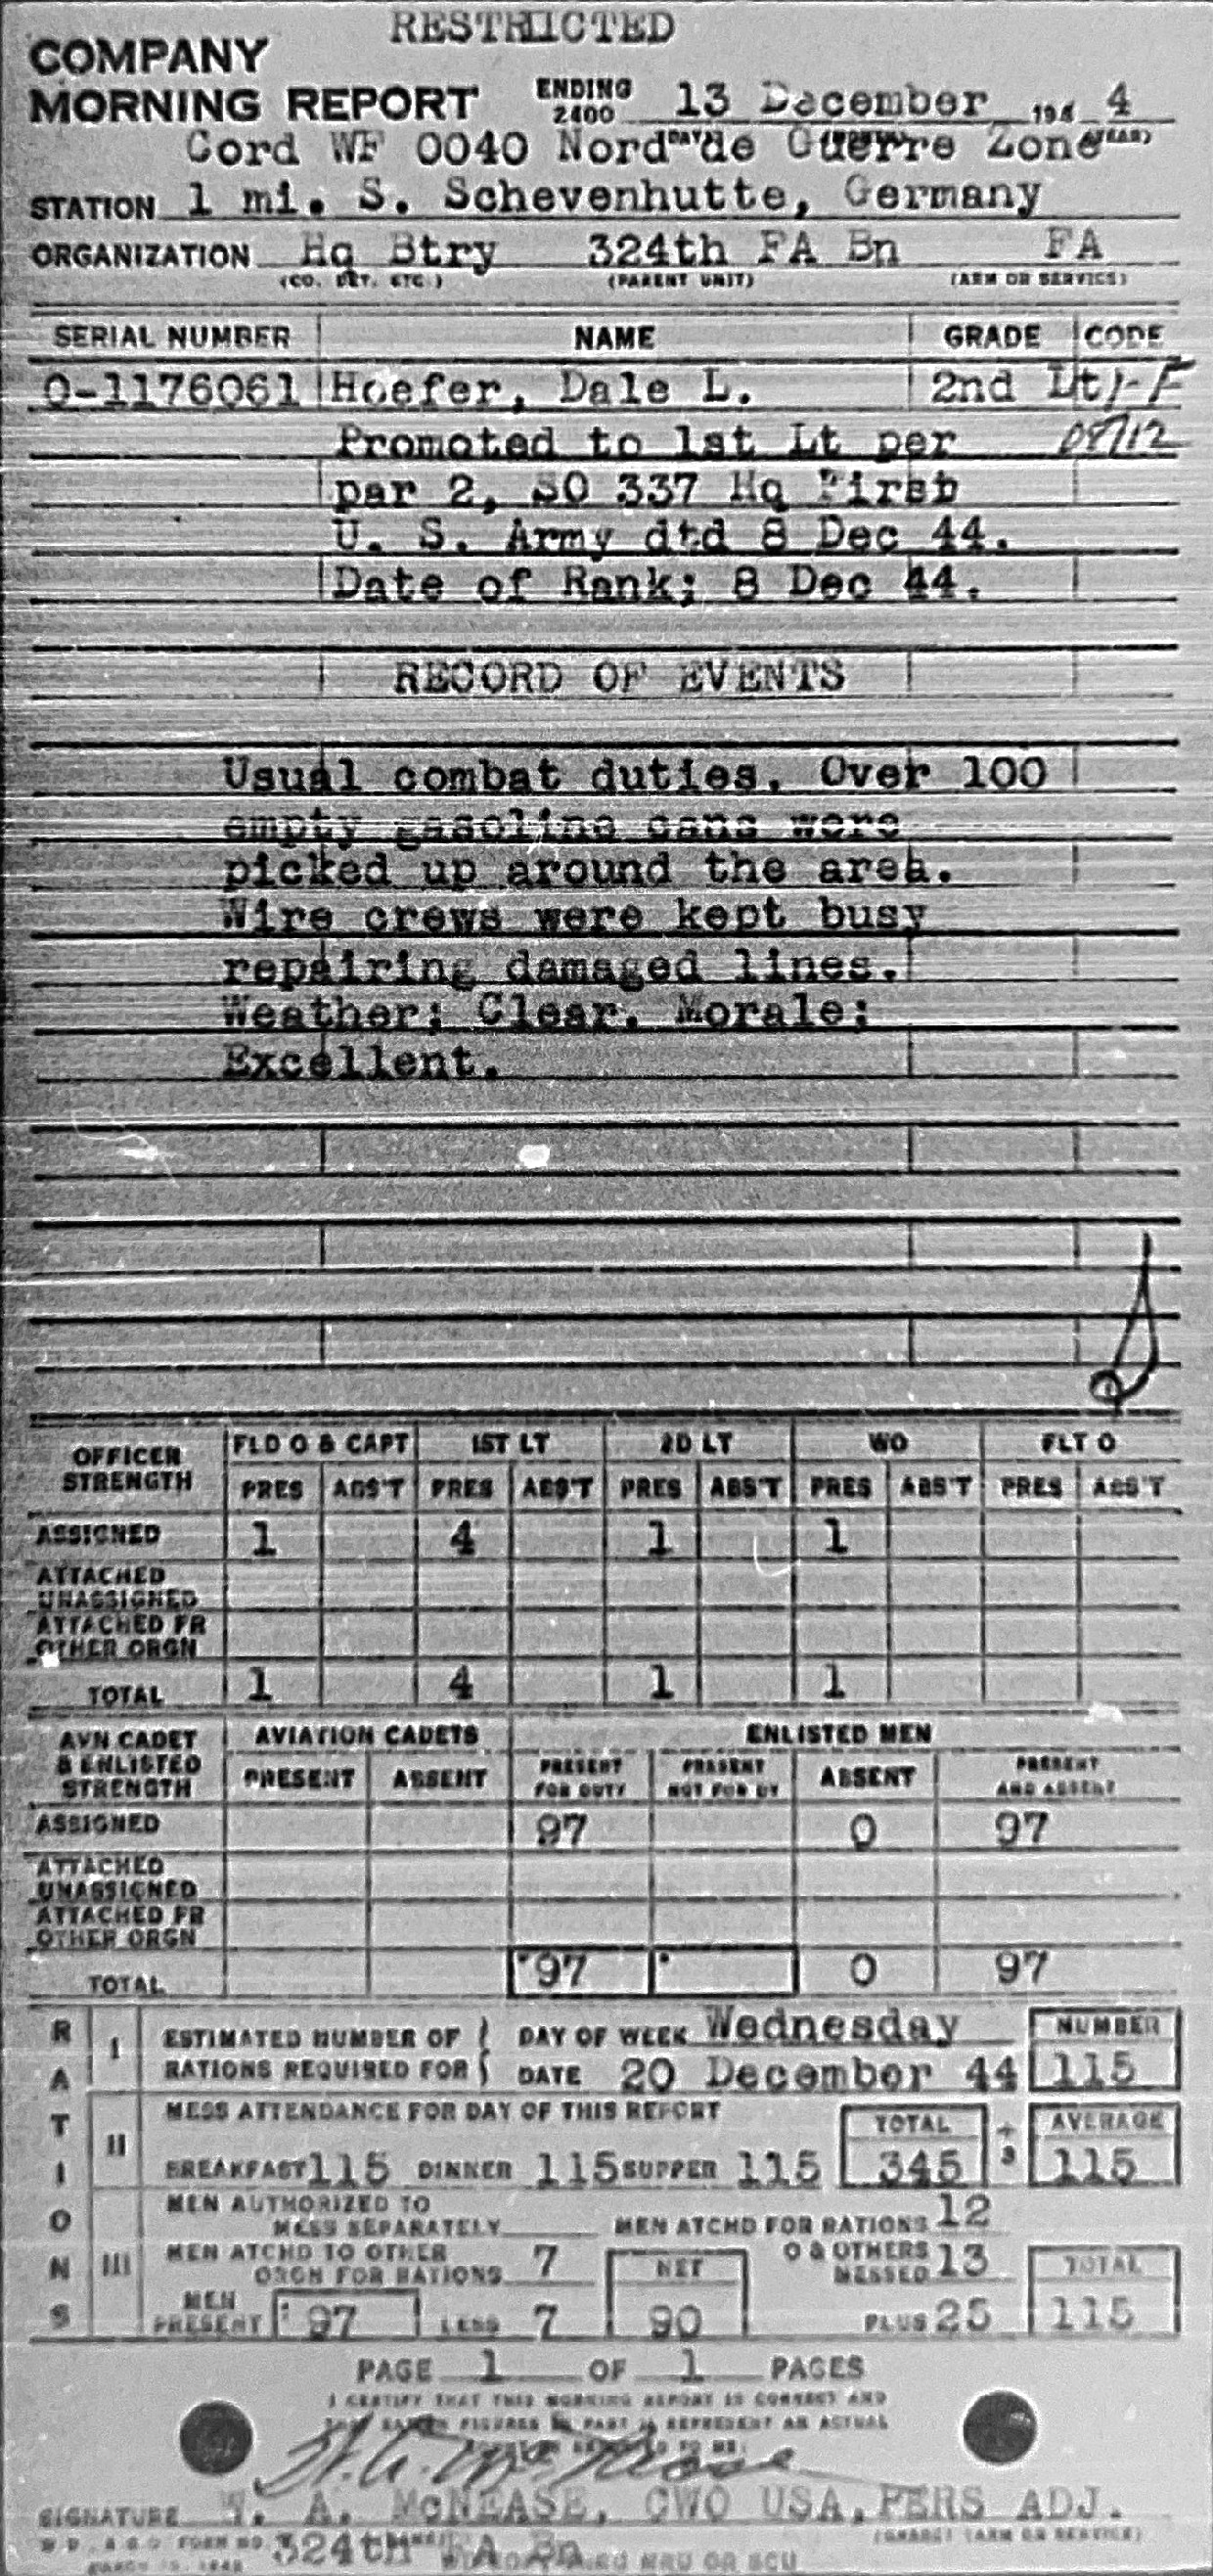 RESTRICTED
COMPANY
MORNING REPORT ENDING 2400 13 December 194 4
Cord WF 0040 Nord de Guerre Zone
STATION 1 mi. S. Schevenhutte, Germany
ORGANIZATION Hq Btry 324th FA Bn FA
(CO. DET. ETC.) (PARENT UNIT) (ARM OR SERVICE)
SERIAL NUMBER NAME GRADE CODE
O-1176061 Hoefer, Dale L. 2nd Lt
Promoted to 1st Lt per
par 2, SO 337 Hq First
U. S. Army dtd 8 Dec 44.
Date of Rank; 8 Dec 44.
RECORD OF EVENTS
Usual combat duties. Over 100
empty gasoline cans were
picked up around the area.
Wire crews were kept busy
repairing damaged lines.
Weather; Clear. Morale;
Excellent.
OFFICER STRENGTH FLD O & CAPT 1ST LT 2D LT WO FLT O
PRES ABS'T PRES ABS'T PRES ABS'T PRES ABS'T PRES ABS'T
ASSIGNED 1 4 1 1
ATTACHED
UNASSIGNED
ATTACHED FR
OTHER ORGN
TOTAL 1 4 1 1
AVN CADET & ENLISTED STRENGTH AVIATION CADETS ENLISTED MEN
PRESENT ABSENT PRESENT FOR DUTY PRESENT NOT FOR DY ABSENT PRESENT AND ABSENT
ASSIGNED 97 0 97
ATTACHED
UNASSIGNED
ATTACHED FR
OTHER ORGN
TOTAL 97 0 97
RATIONS
I ESTIMATED NUMBER OF DAY OF WEEK Wednesday NUMBER
RATIONS REQUIRED FOR DATE 20 December 44 115
II MESS ATTENDANCE FOR DAY OF THIS REPORT TOTAL ÷ 3 AVERAGE
BREAKFAST 115 DINNER 115 SUPPER 115 345 115
III MEN AUTHORIZED TO
MESS SEPARATELY MEN ATCHD FOR RATIONS 12
MEN ATCHD TO OTHER
ORGN FOR RATIONS 7 NET O & OTHERS MESSED 13 TOTAL
MEN PRESENT 97 LESS 7 90 PLUS 25 115
PAGE 1 OF 1 PAGES
I CERTIFY THAT THIS MORNING REPORT IS CORRECT AND
FIGURES IN PART REPRESENT AN ACTUAL
SIGNATURE A. McNEASE, CWO USA, PERS ADJ.
FORM NO. 324th FA Bn
MRU OR SCU